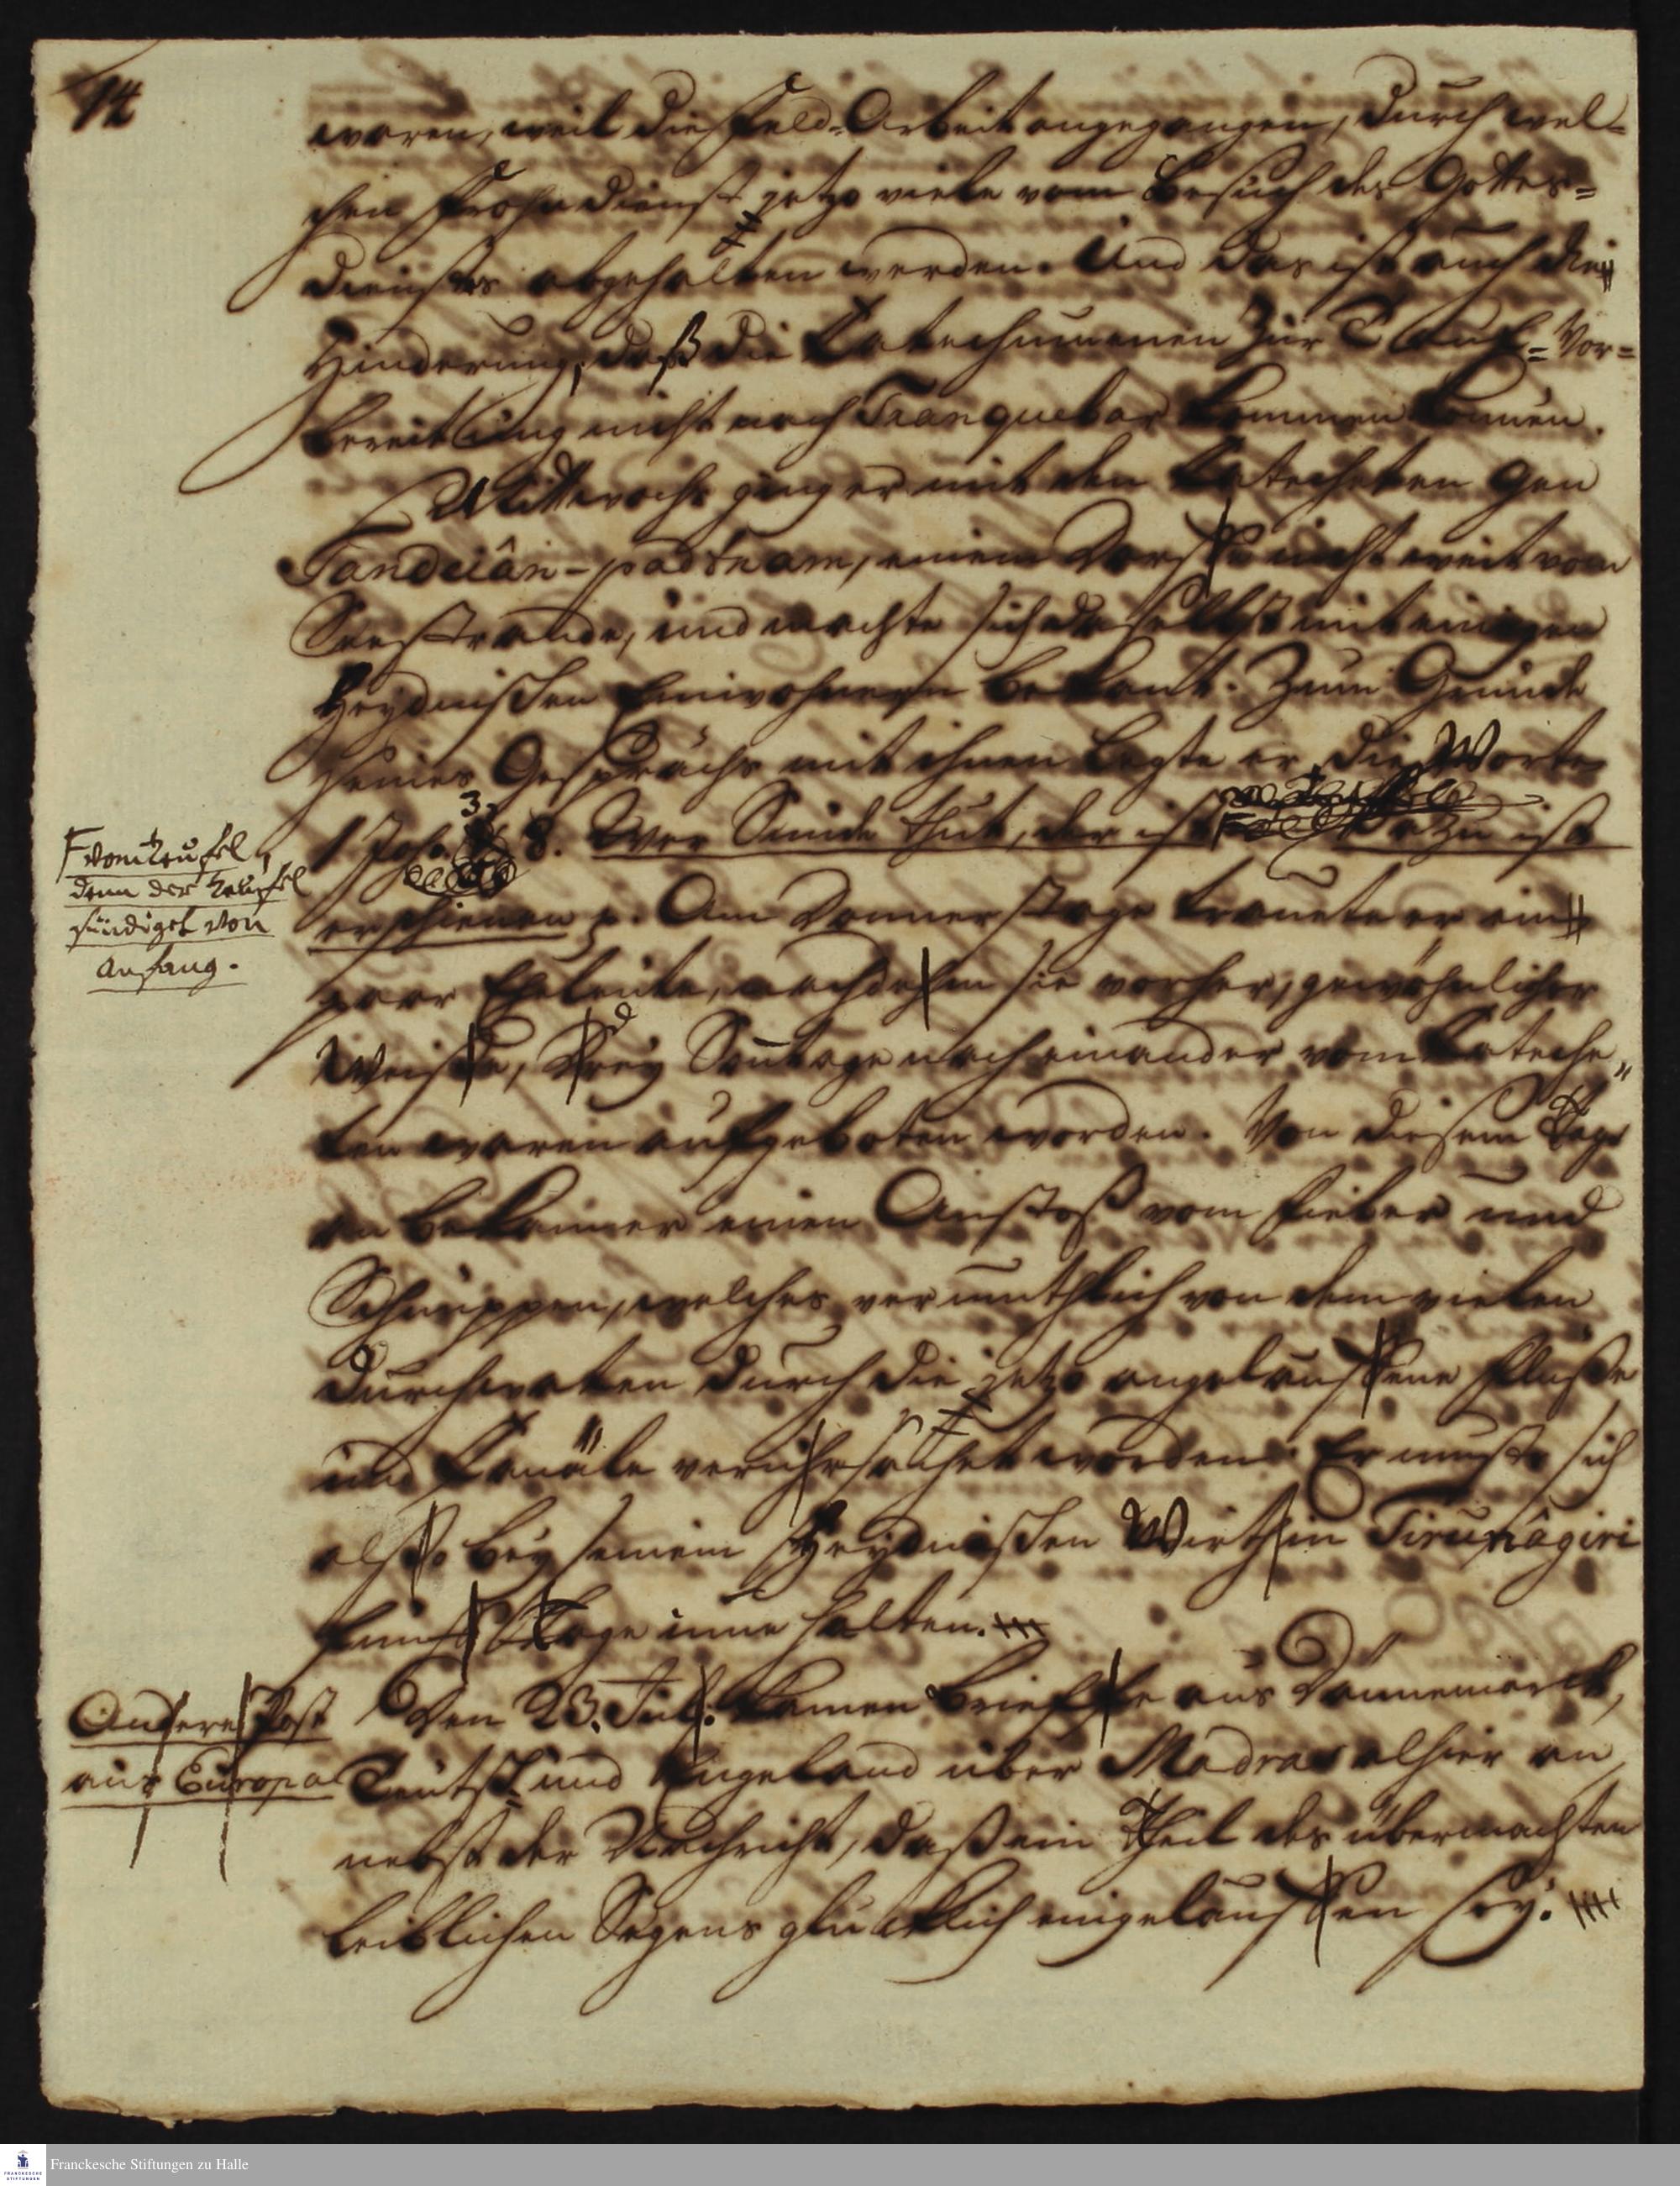 14
waren, weil die Feld-Arbeit angegangen, durch wel-
chen Frohndienst jetzo viele vom Besuch des Gottes-
dienstes abgehalten werden. Und das ist auch die
Hinderung, daß die Catechumenen zur Tauf-Vor-
bereitung nicht nach Tranquebar kommen können.
Mittwochs ging er mit den Catecheten gen
Tanduân-padtnam, einem Dorffe nicht weit vom
Seestrande, und machte sich daselbst mit einigen
Heydnischen Einwohnern bekant. Zum Grunde
seines Gesprächs mit ihnen legte er die Worte
1 Joh. 3, 8. Wer Sünde thut, der ist dazu ist
F vom Teufel,
denn der Teufel
sündiget von
Anfang.
erschienen p. Am Donnerstage trauete er ein
paar Eheleute, nachdehm sie vorher, gewöhnlicher
Weise, drey Sontage nach einander vom Cateche-
ten waren aufgeboten worden. Von diesem Tage
an bekam er einen Anstoß vom Fieber und
Schnuppen, welches vermuthlich von dem vielen
Durchwaten durch die jetzo angelauffene Flüße
und Canäle veruhrsachet worden. Er muste sich
also bey seinem Heydnischen Wirth in Tirunâgiri
fünf Tage inne halten.
Andere Post
aus Europa
Den 23. Jul. kamen Brieffe aus Dännemarck,
Teutschl. und Engeland über Madras alhier an,
nebst der Nachricht, daß ein Theil des übermachten
leiblichen Segens glücklich eingelauffen sey.
Franckesche Stiftungen zu Halle